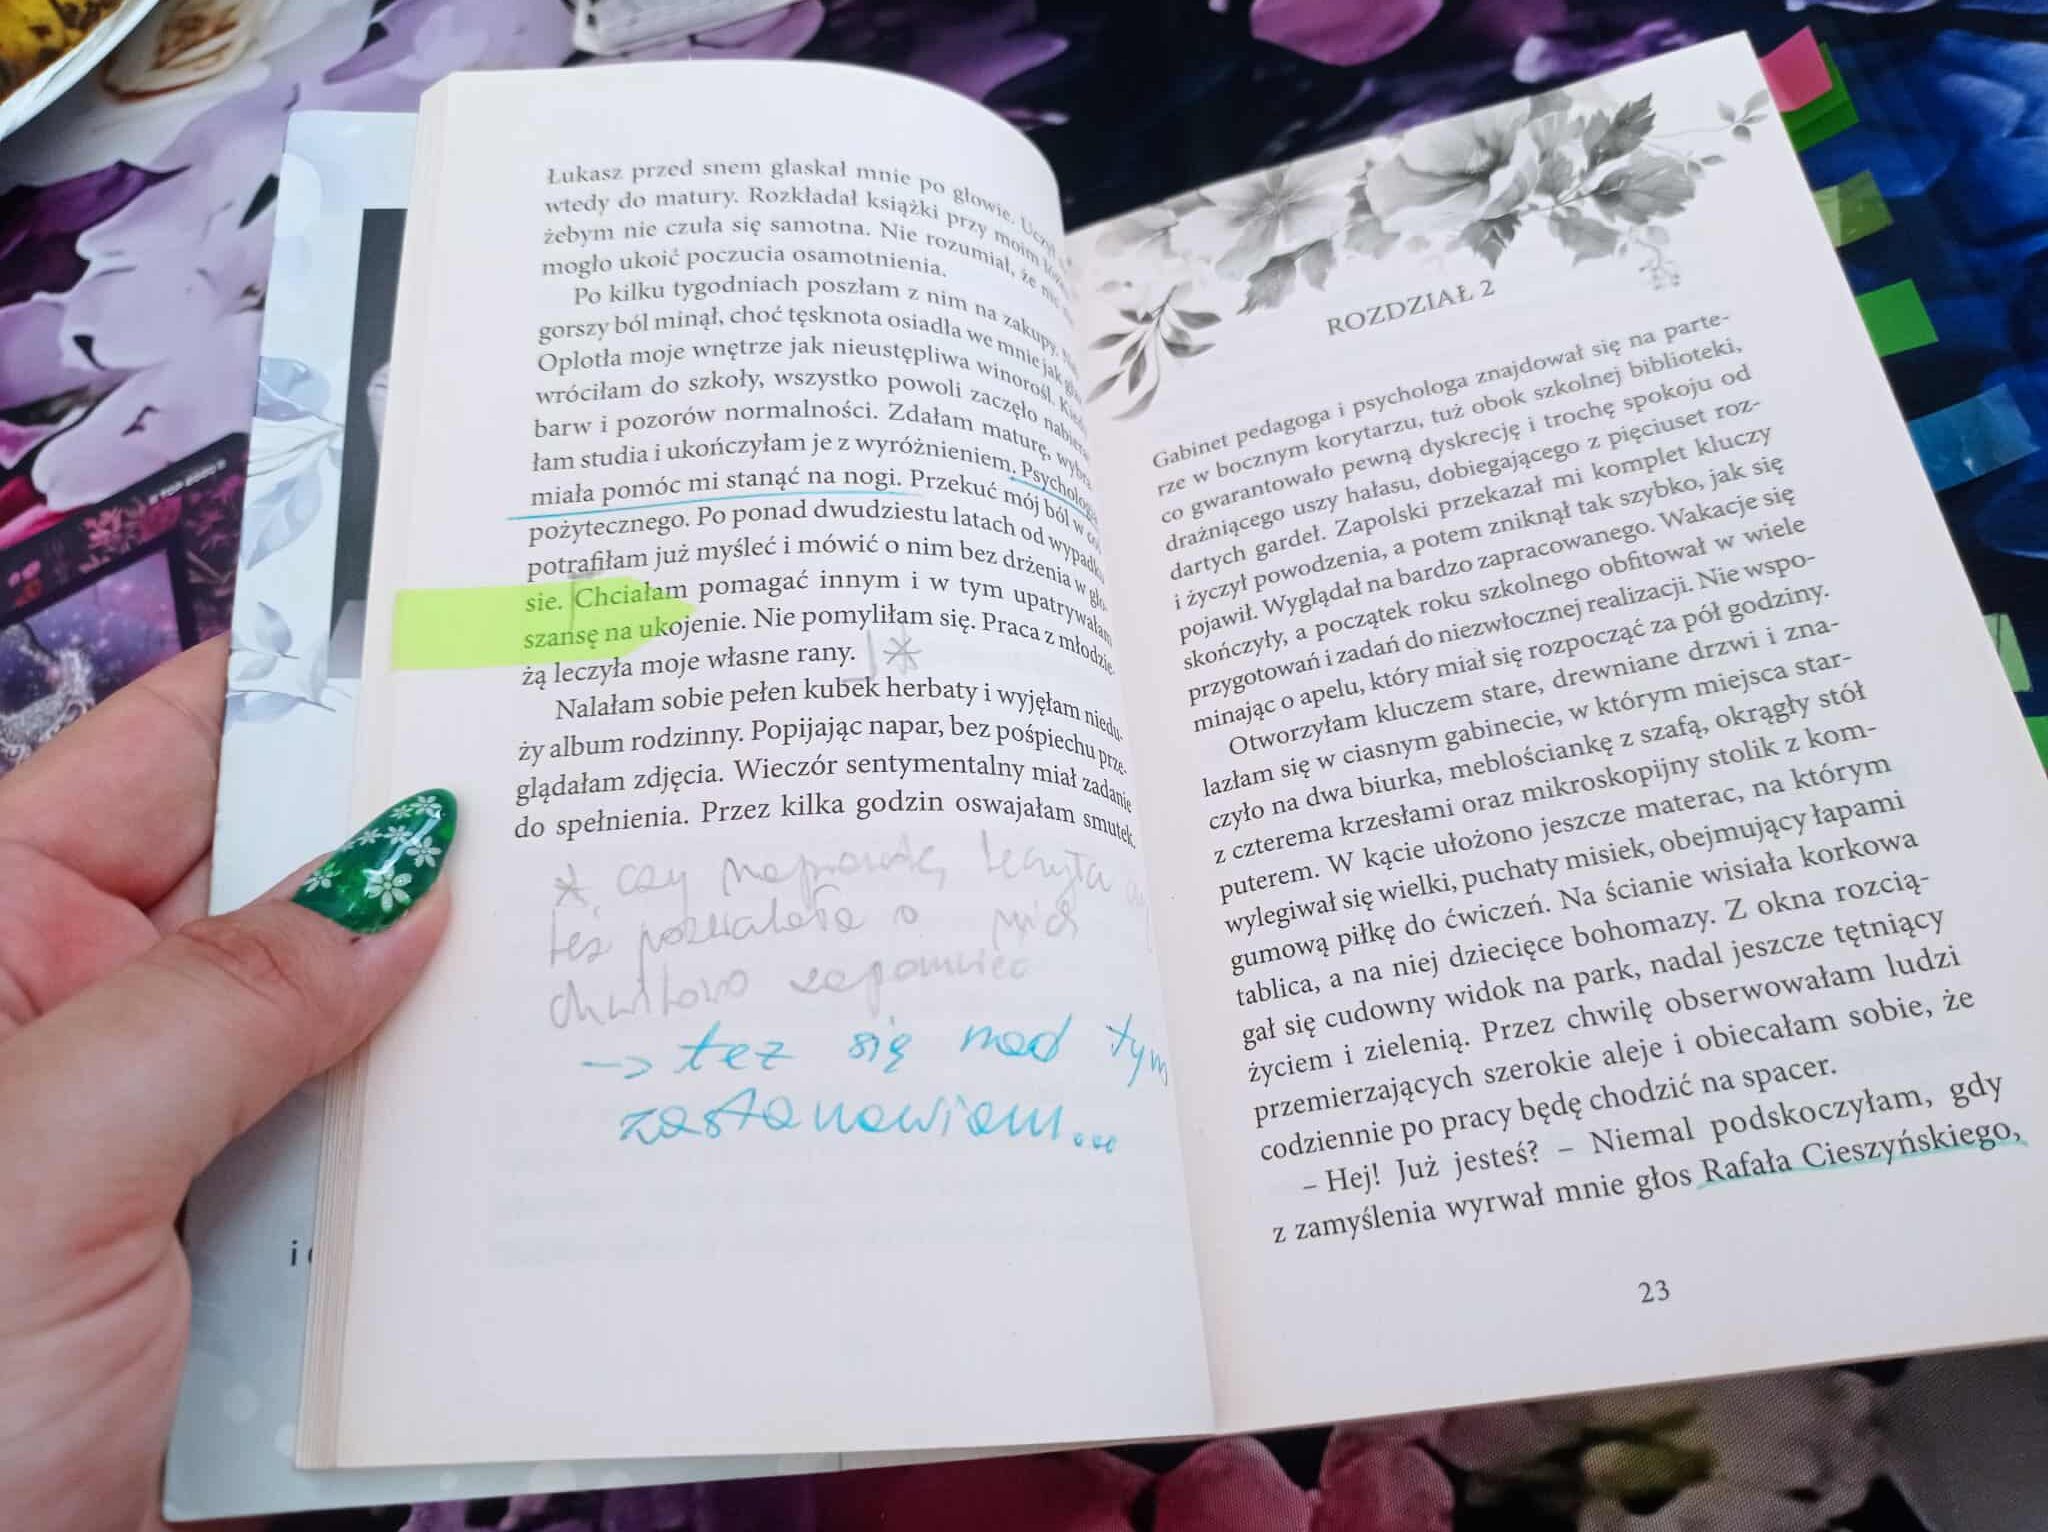 Łukasz przed snem głaskał mnie po głowie. Uczył
wtedy do matury. Rozkładał książki przy moim
żebym nie czuła się samotna. Nie rozumiał, że nic
mogło ukoić poczucia osamotnienia.
Po kilku tygodniach poszłam z nim na zakupy.
gorszy ból minął, choć tęsknota osiadła we mnie jak
Oplotła moje wnętrze jak nieustępliwa winorośl. Kiedy
wróciłam do szkoły, wszystko powoli zaczęło nabierać
barw i pozorów normalności. Zdałam maturę, wybra-
łam studia i ukończyłam je z wyróżnieniem. Psychologia
miała pomóc mi stanąć na nogi. Przekuć mój ból w coś
pożytecznego. Po ponad dwudziestu latach od wypadku
potrafiłam już myśleć i mówić o nim bez drżenia w gło-
sie. Chciałam pomagać innym i w tym upatrywałam
szansę na ukojenie. Nie pomyliłam się. Praca z młodzie-
żą leczyła moje własne rany. *
Nalałam sobie pełen kubek herbaty i wyjęłam niedu-
ży album rodzinny. Popijając napar, bez pośpiechu prze-
glądałam zdjęcia. Wieczór sentymentalny miał zadanie
do spełnienia. Przez kilka godzin oswajałam smutek.
* czy naprawdę leczyła
też pozwalała o nich
chwilowo zapomnieć
-> też się nad tym
zastanawiam...
ROZDZIAŁ 2
Gabinet pedagoga i psychologa znajdował się na parte-
rze w bocznym korytarzu, tuż obok szkolnej biblioteki,
co gwarantowało pewną dyskrecję i trochę spokoju od
drażniącego uszy hałasu, dobiegającego z pięciuset roz-
dartych gardeł. Zapolski przekazał mi komplet kluczy
i życzył powodzenia, a potem zniknął tak szybko, jak się
pojawił. Wyglądał na bardzo zapracowanego. Wakacje się
skończyły, a początek roku szkolnego obfitował w wiele
przygotowań i zadań do niezwłocznej realizacji. Nie wspo-
minając o apelu, który miał się rozpocząć za pół godziny.
Otworzyłam kluczem stare, drewniane drzwi i zna-
lazłam się w ciasnym gabinecie, w którym miejsca star-
czyło na dwa biurka, meblościankę z szafą, okrągły stół
z czterema krzesłami oraz mikroskopijny stolik z kom-
puterem. W kącie ułożono jeszcze materac, na którym
wylegiwał się wielki, puchaty misiek, obejmujący łapami
gumową piłkę do ćwiczeń. Na ścianie wisiała korkowa
tablica, a na niej dziecięce bohomazy. Z okna rozcią-
gał się cudowny widok na park, nadal jeszcze tętniący
życiem i zielenią. Przez chwilę obserwowałam ludzi
przemierzających szerokie aleje i obiecałam sobie, że
codziennie po pracy będę chodzić na spacer.
– Hej! Już jesteś? – Niemal podskoczyłam, gdy
z zamyślenia wyrwał mnie głos Rafała Cieszyńskiego,
23